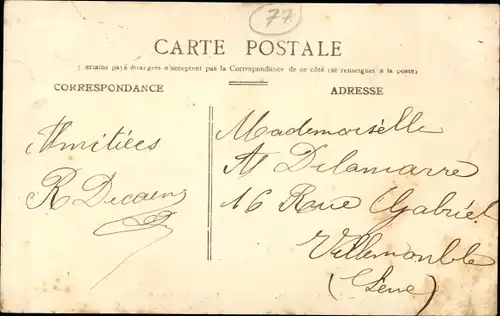 77
CARTE POSTALE
(Certains pays étrangers n'acceptent pas la Correspondance de ce côté (se renseigner à la poste)
CORRESPONDANCE
ADRESSE
Amitiées
R Decaens
Mademoiselle
A Delamarre
16 Rue Gabriel
Villemonble
(Seine)